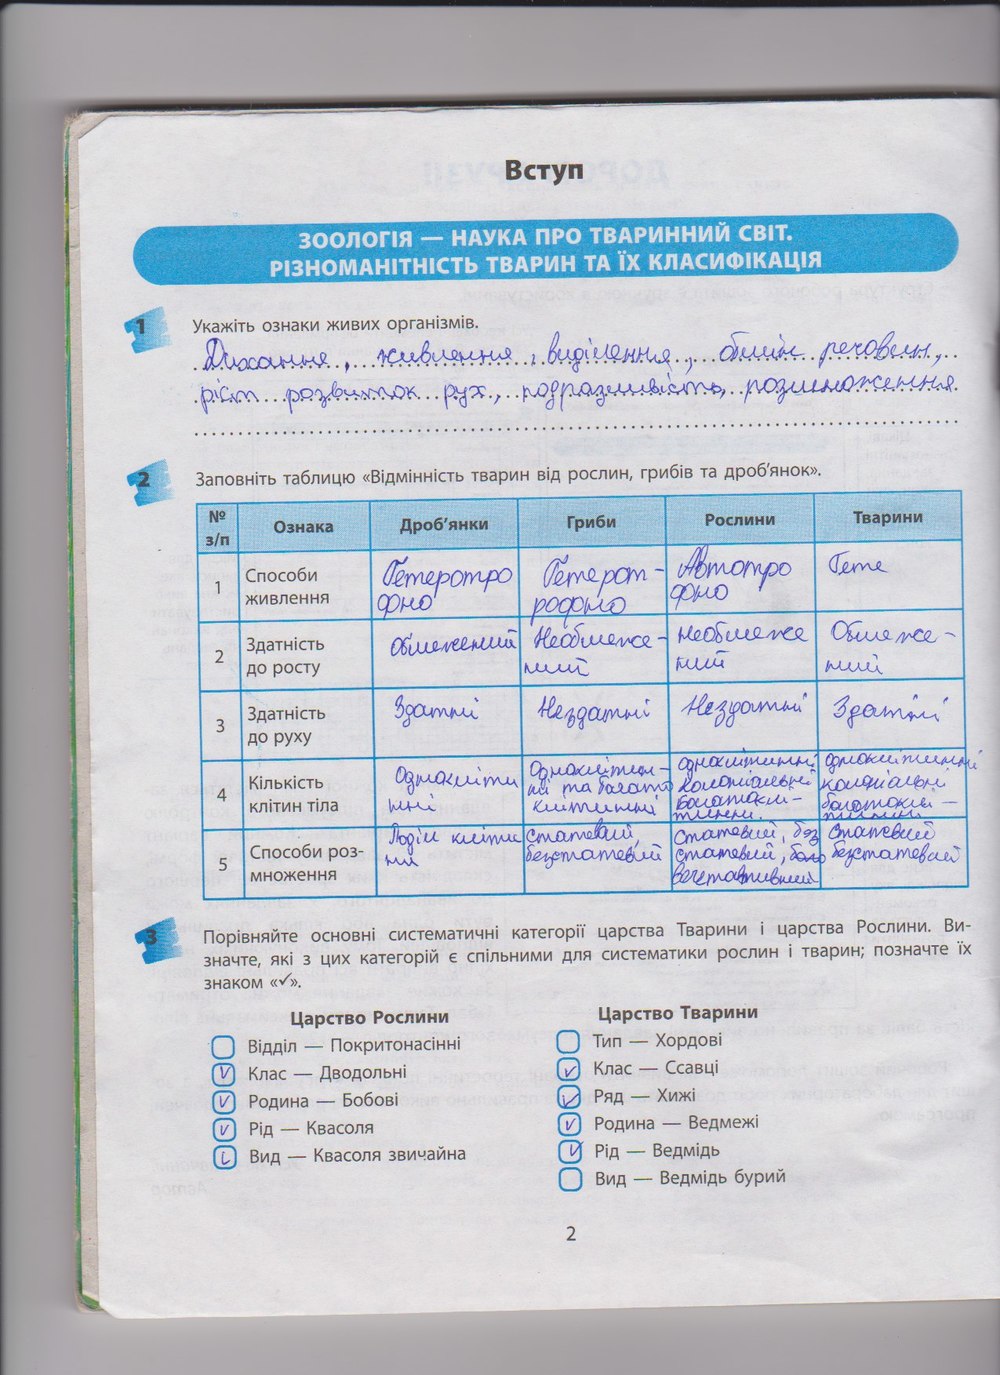 Вступ
ЗООЛОГІЯ — НАУКА ПРО ТВАРИННИЙ СВІТ.
РІЗНОМАНІТНІСТЬ ТВАРИН ТА ЇХ КЛАСИФІКАЦІЯ
1 Укажіть ознаки живих організмів.
Дихання, живлення, виділення, обмін речовин,
ріст розвиток рух, подразливість, розмноження
2 Заповніть таблицю «Відмінність тварин від рослин, грибів та дроб’янок».
№ з/п Ознака Дроб’янки Гриби Рослини Тварини
1 Способи живлення Гетеротро фно Гетерот- рофно Автотро фно Гете
2 Здатність до росту Обмежений Необмеже- ний необмеже ний Обмеже- ний
3 Здатність до руху Здатні Нездатні Нездатні Здатні
4 Кількість клітин тіла одноклiти нні одноклітин- ні та багато клітинні одноклітинні колоніальні багатоклі- тинни. одноклітинні колоніальні багатоклі- тинни
5 Способи роз- множення Поділ кліти ни статевий, безстатевий статевий, без статевий, вегетативний статевий безстатевий
3 Порівняйте основні систематичні категорії царства Тварини і царства Рослини. Ви-
значте, які з цих категорій є спільними для систематики рослин і тварин; позначте їх
знаком «✓».
Царство Рослини
Відділ — Покритонасінні
✓ Клас — Дводольні
✓ Родина — Бобові
✓ Рід — Квасоля
✓ Вид — Квасоля звичайна
Царство Тварини
Тип — Хордові
✓ Клас — Ссавці
✓ Ряд — Хижі
✓ Родина — Ведмежі
✓ Рід — Ведмідь
Вид — Ведмідь бурий
2